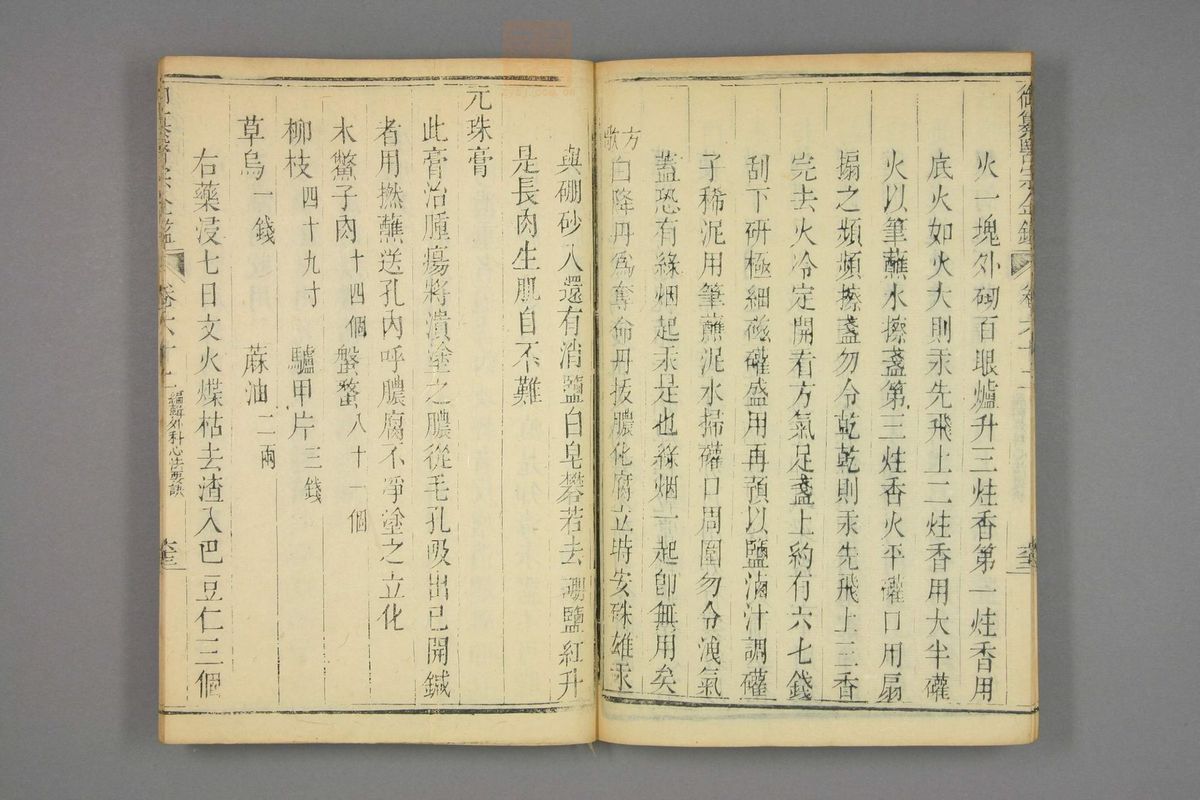 御纂醫宗金鑑
火一塊外砌百眼爐升三炷香第一炷香用
底火如火大則汞先飛上二炷香用大半礶
火以筆蘸水擦盞第三炷香火平礶口用扇
搧之頻頻擦盞勿令乾乾則汞先飛上三香
完去火冷定開看方氣足盞上約有六七錢
刮下研極細磁礶盛用再預以鹽滷汁調礶
子稀泥用筆蘸泥水掃礶口周圍勿令洩氣
蓋恐有綠烟起汞是也綠烟一起卽無用矣
方歌
白降丹爲奪命丹拔膿化腐立時安硃雄汞
與硼砂入還有消鹽白皂礬若去硼鹽紅升
是長肉生肌自不難
元珠膏
此膏治腫瘍將潰塗之膿從毛孔吸出已開鍼
者用撚蘸送孔內呼膿腐不凈塗之立化
木鱉子肉十四個 盤蝥八十一個
柳枝四十九寸 驢甲片三錢
草烏一錢 蔴油二兩
右藥浸七日文火煠枯去渣入巴豆仁三個
編輯外科心法要訣